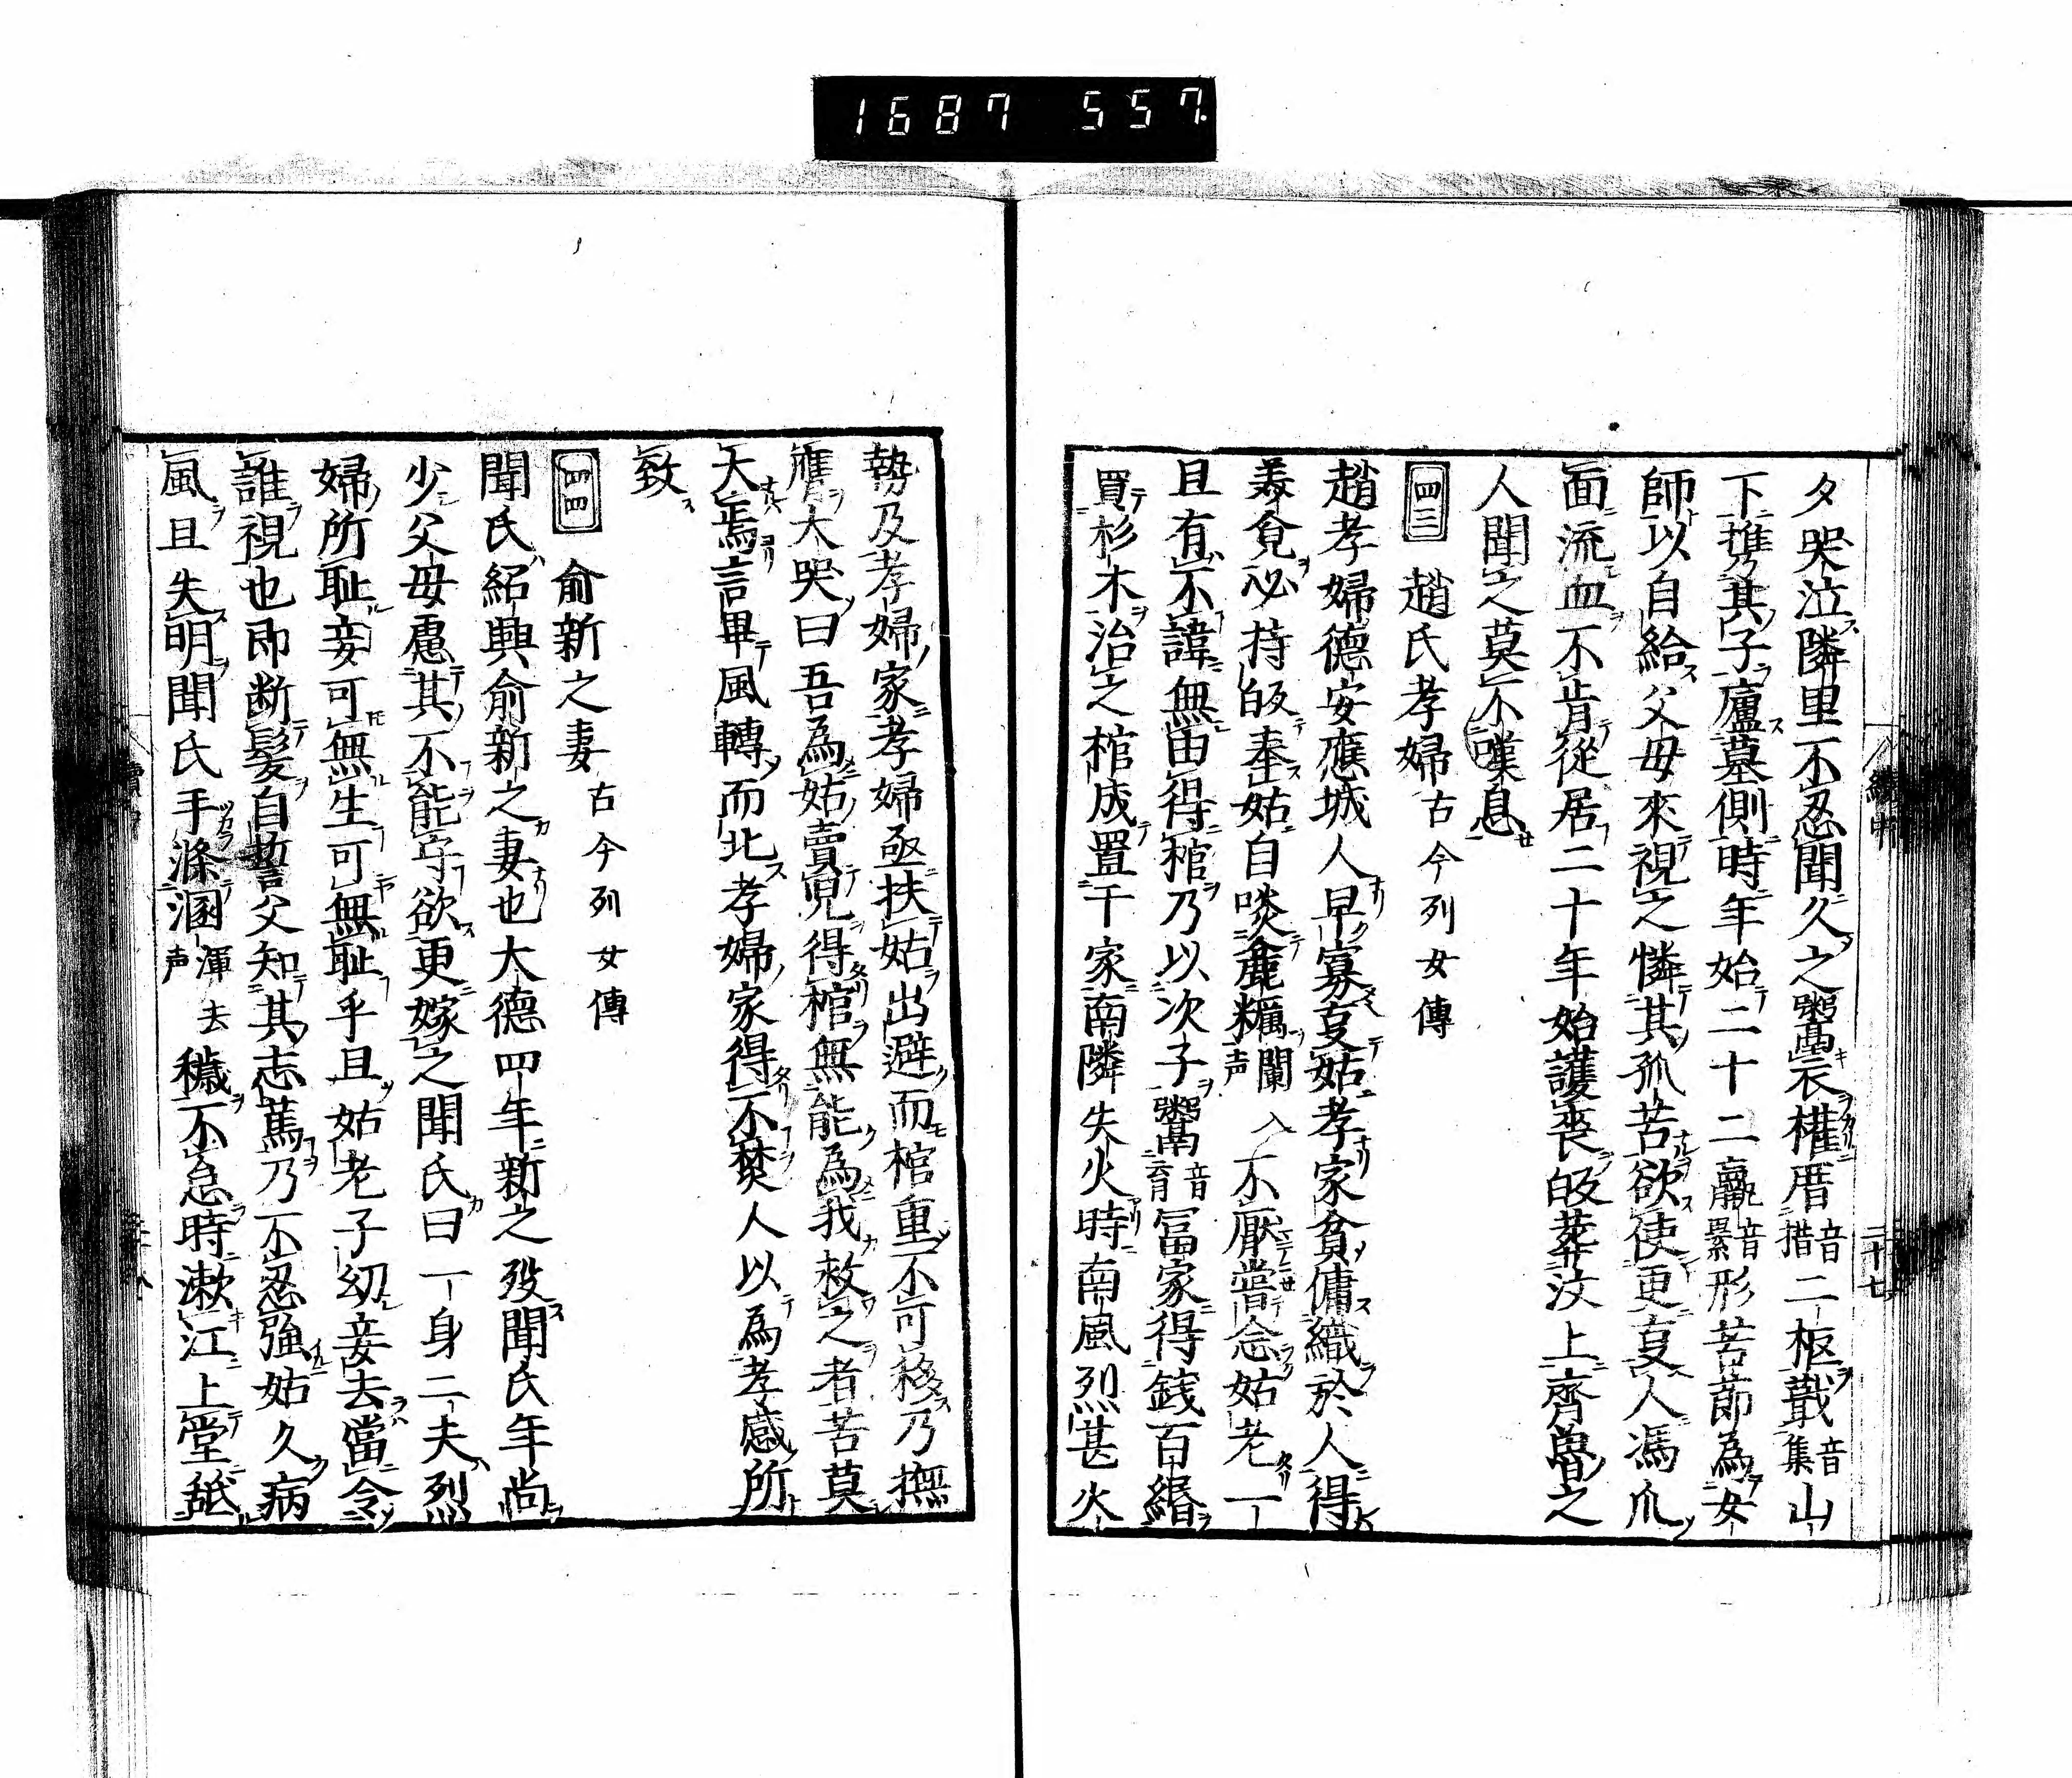 1687 557.
夕哭泣隣里不忍聞久之鬻衣権厝音措二柩蕺音集山
下携其子廬墓側時年始二十二羸音累形苦節為女
師以自給父母來視之憐其孤苦欲使更亥人馮爪
面流血不肯從居二十年始護喪皈葬汶上齊魯之
人聞之莫不嘆息
四三 趙氏孝婦 古今列女傳
趙孝婦德安應城人早寡亥姑孝家貧傭織於人得
美食必持皈奉姑自啖麁糲闌入声不厭嘗念姑老一
且有不諱無由得棺乃以次子鬻音育冨家得銭百緡
買杉木治之棺成置于家南隣失火時南風烈甚火
勢及孝婦家孝婦亟扶姑出避而棺重不可移乃撫
膺大哭曰吾為姑賣児得棺無能為我救之者苦莫
大焉言畢風轉而北孝婦家得不焚人以為孝感所
致
四四 俞新之妻 古今列女傳
聞氏紹興俞新之妻也大德四年新之歿聞氏年尚
少父母慮其不能守欲更嫁之聞氏曰一身二夫烈
婦所恥妾可無生可無恥乎且姑老子幼妾去當令
誰視也即断髮自誓父知其志篤乃不忍強姑久病
風且失明聞氏手滌溷渾去声穢不怠時漱江上堂舐
續中
二十七